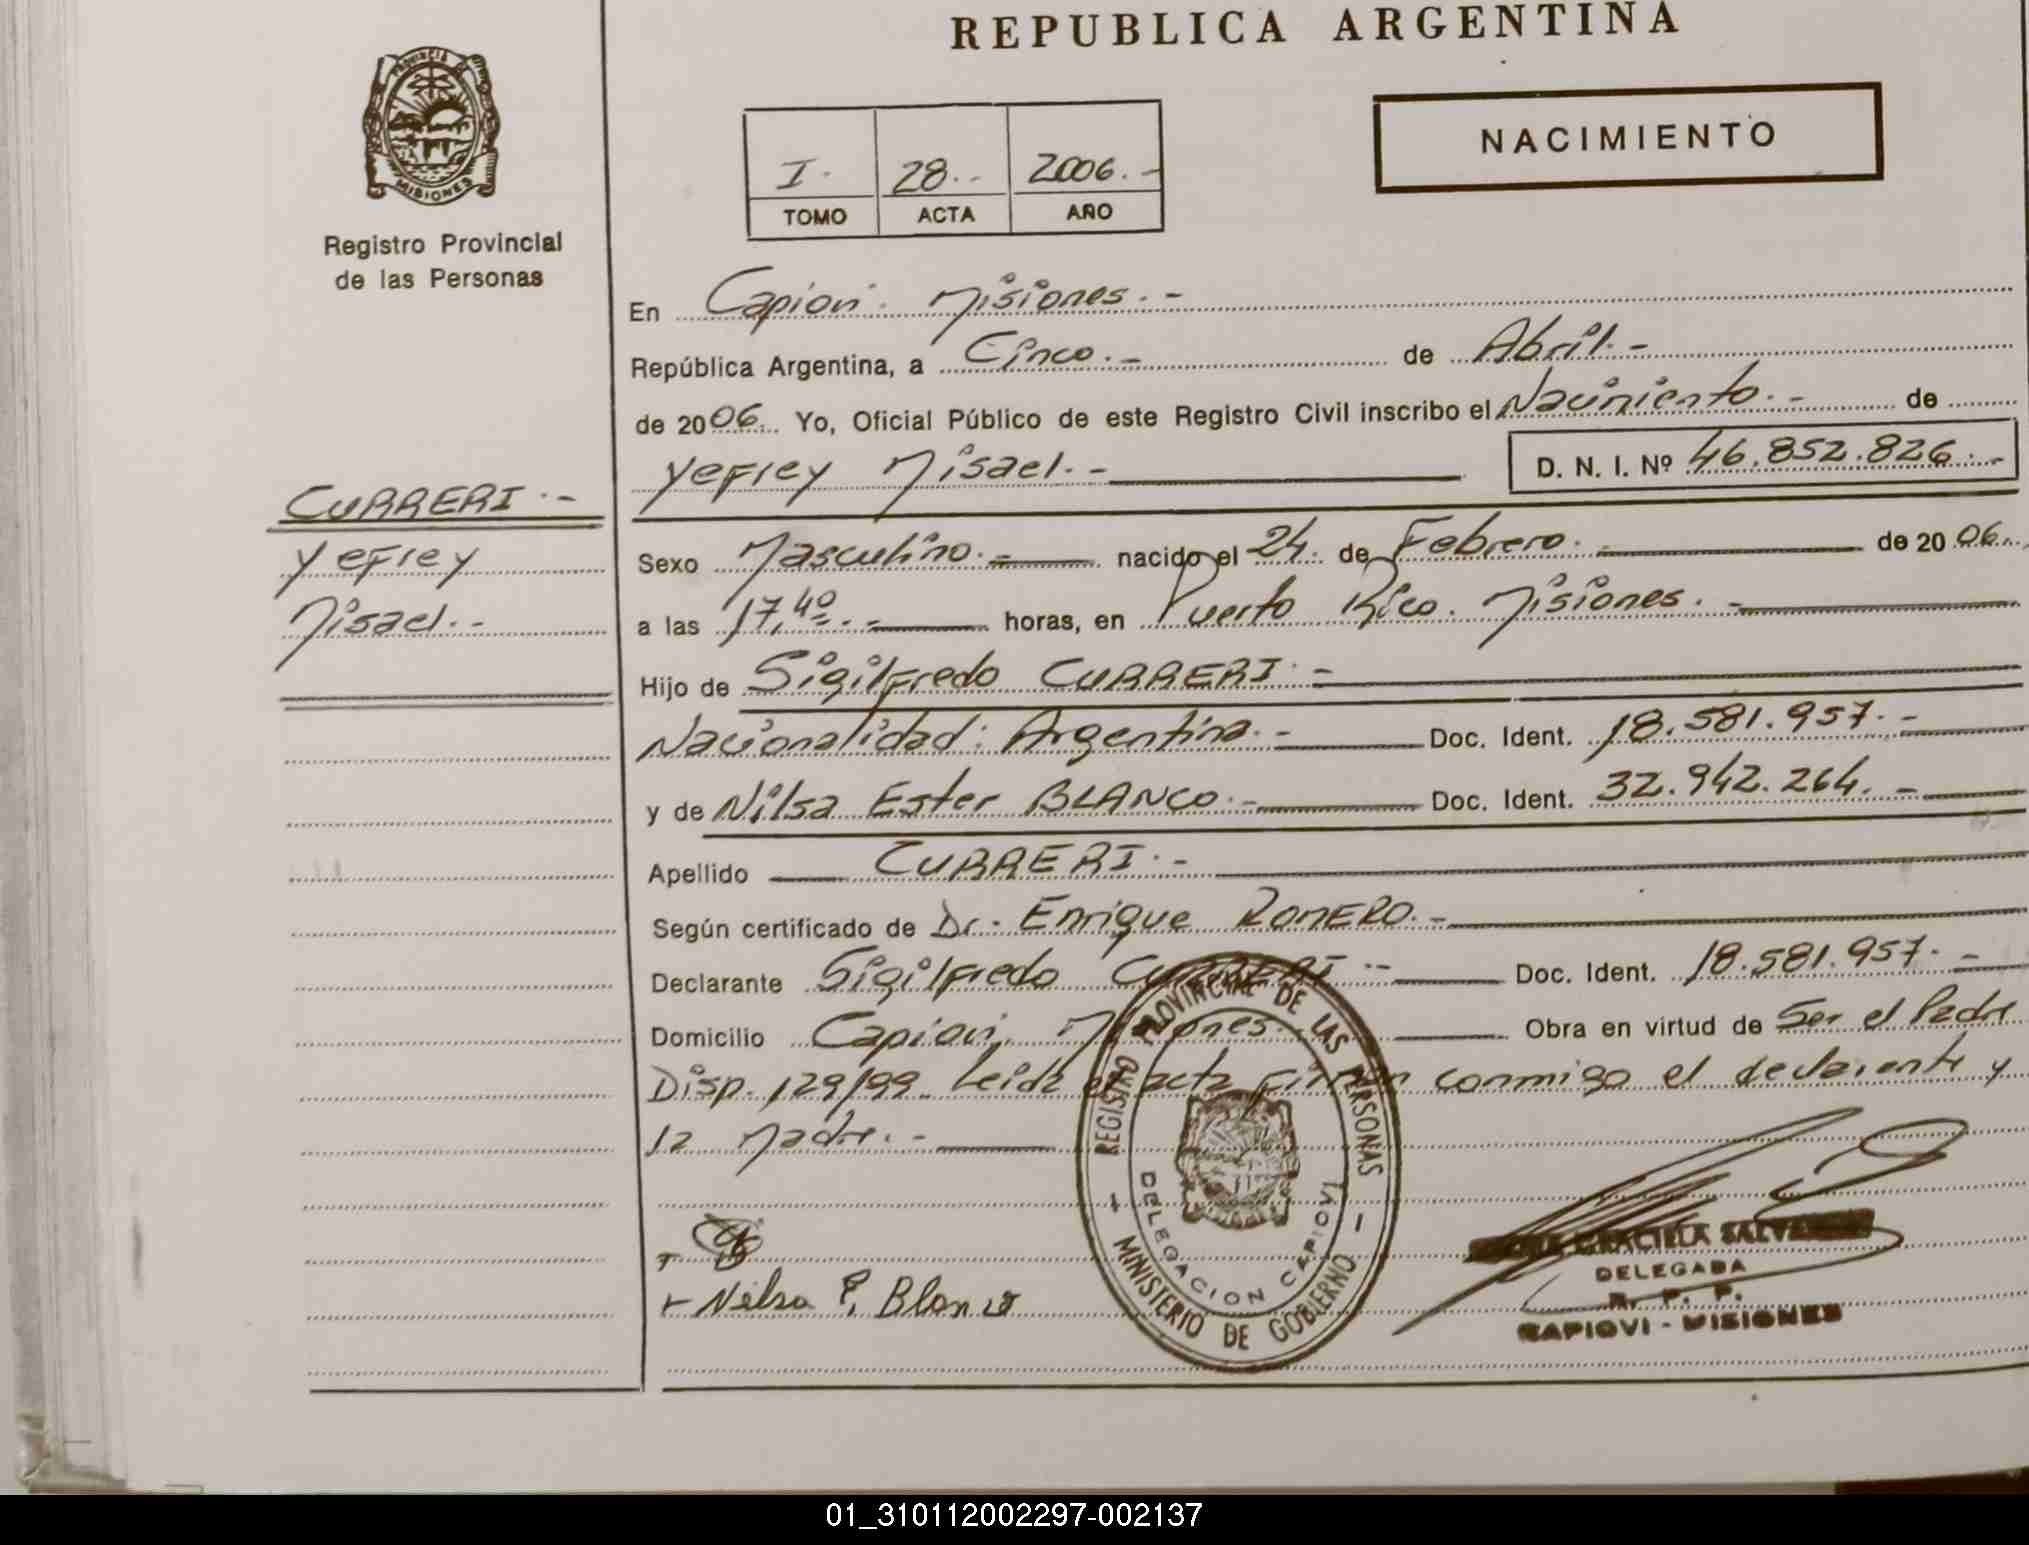 REPUBLICA ARGENTINA
PROVINCIA DE
MISIONES
Registro Provincial
de las Personas
NACIMIENTO
I.	28.-	2006.-
TOMO	ACTA	AÑO
En Capiovi. Misiones.-
República Argentina, a Cinco.- de Abril.-
de 2006. Yo, Oficial Público de este Registro Civil inscribo el Nacimiento.- de
Yefrey Misael.- D. N. I. Nº 46.852.826.-
CURRERI.-
Yefrey
Misael.-
Sexo Masculino.- nacido el 24. de Febrero. de 2006.
a las 17,40.- horas, en Puerto Rico. Misiones.-
Hijo de Sigilfredo CURRERI.-
Nacionalidad: Argentina.- Doc. Ident. 18.581.957.-
y de Nilsa Ester BLANCO.- Doc. Ident. 32.942.264.-
Apellido CURRERI.-
Según certificado de Dr. Enrique ROMERO.-
Declarante Sigilfredo CURRERI.- Doc. Ident. 18.581.957.-
Domicilio Capiovi. Misiones. Obra en virtud de Ser el Padre
Disp. 129/99. Leida el acta firman conmigo el declarante y
la Madre.-
REGISTRO PROVINCIAL DE LAS PERSONAS
DELEGACION CAPIOVI
MINISTERIO DE GOBIERNO
Nilsa E. Blanco
GRACIELA
DELEGADA
R. P. P.
CAPIOVI - MISIONES
01_310112002297-002137